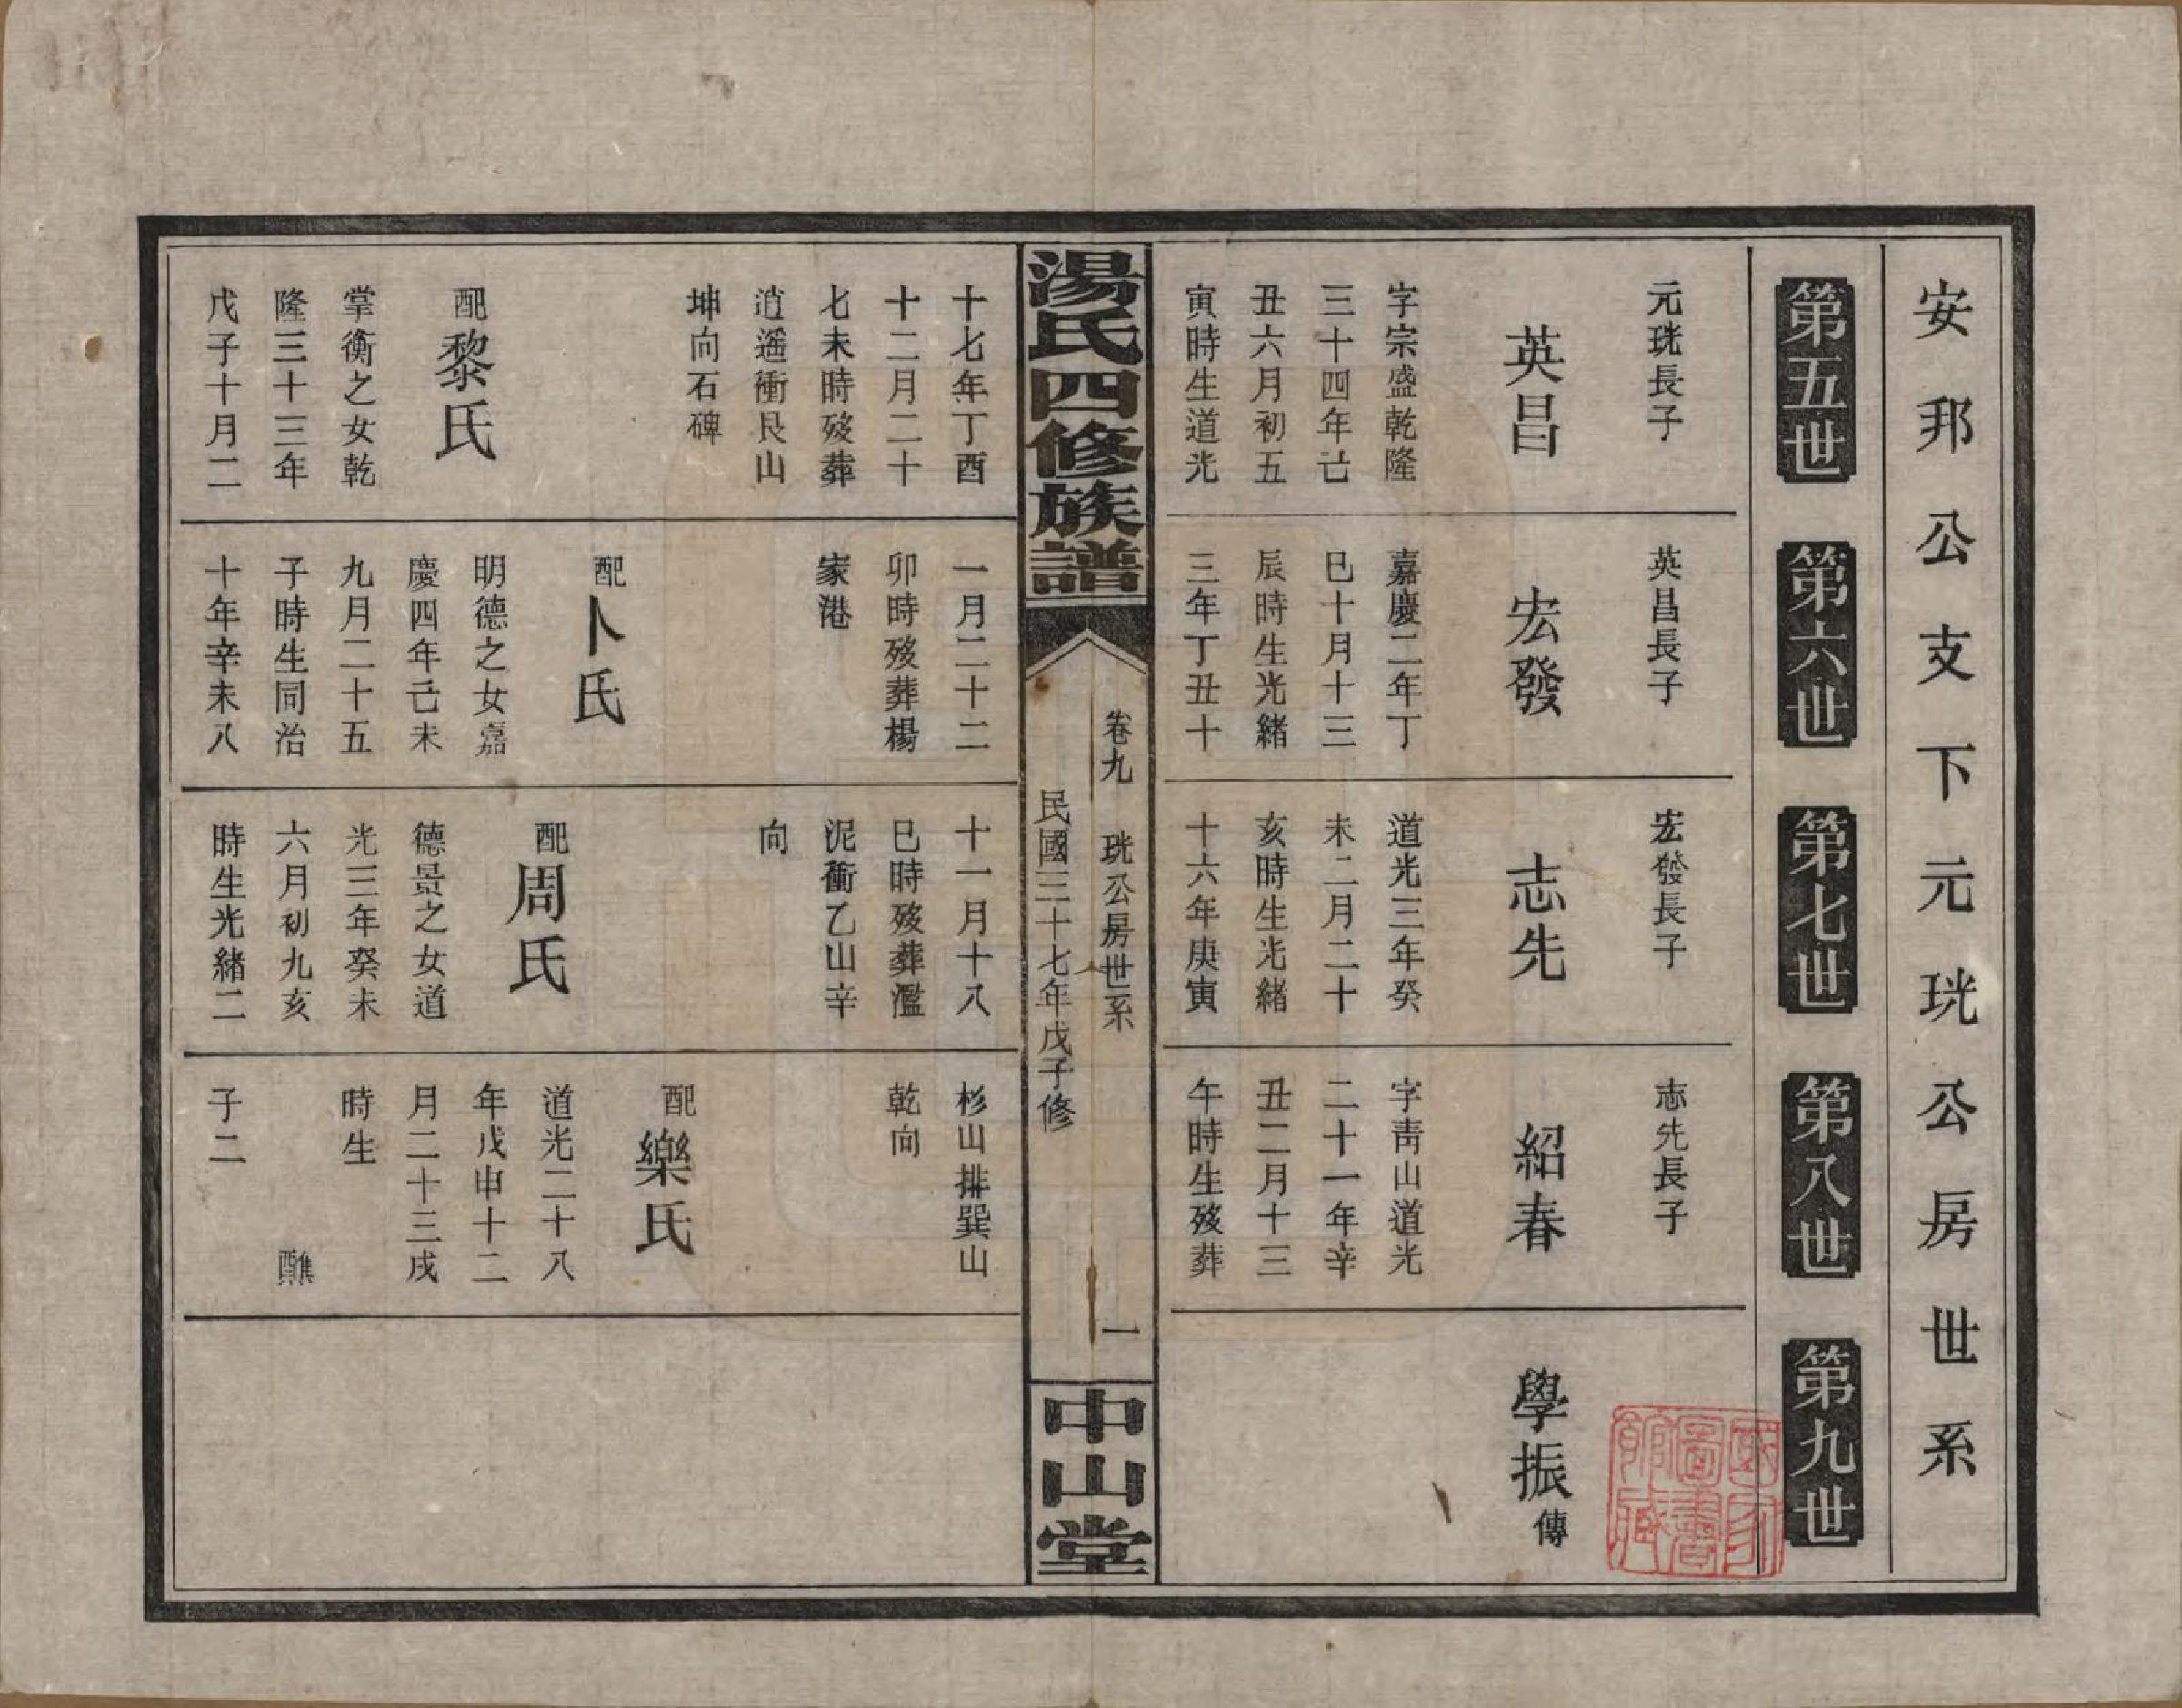 安邦公支下元珖公房世系
第五世
第六世
第七世
第八世
第九世
元珖長子
英昌
字宗盛乾隆
三十四年己
丑六月初五
寅時生道光
英昌長子
宏發
嘉慶二年丁
巳十月十三
辰時生光緒
三年丁丑十
宏發長子
志先
道光三年癸
未二月二十
亥時生光緒
十六年庚寅
志先長子
紹春
字青山道光
二十一年辛
丑二月十三
午時生歿葬
學振傳
國家圖書館藏
湯氏四修族譜
卷九 珖公房世系 一
民國三十七年戊子修
中山堂
十七年丁酉
十二月二十
七未時歿葬
逍遥衝艮山
坤向石碑
配黎氏
掌衡之女乾
隆三十三年
戊子十月二
一月二十二
卯時歿葬楊
家港
配卜氏
明德之女嘉
慶四年己未
九月二十五
子時生同治
十年辛未八
十一月十八
巳時歿葬濫
泥衝乙山辛
向
配周氏
德景之女道
光三年癸未
六月初九亥
時生光緒二
杉山排巽山
乾向
配樂氏
道光二十八
年戊申十二
月二十三戌
時生
醮
子二